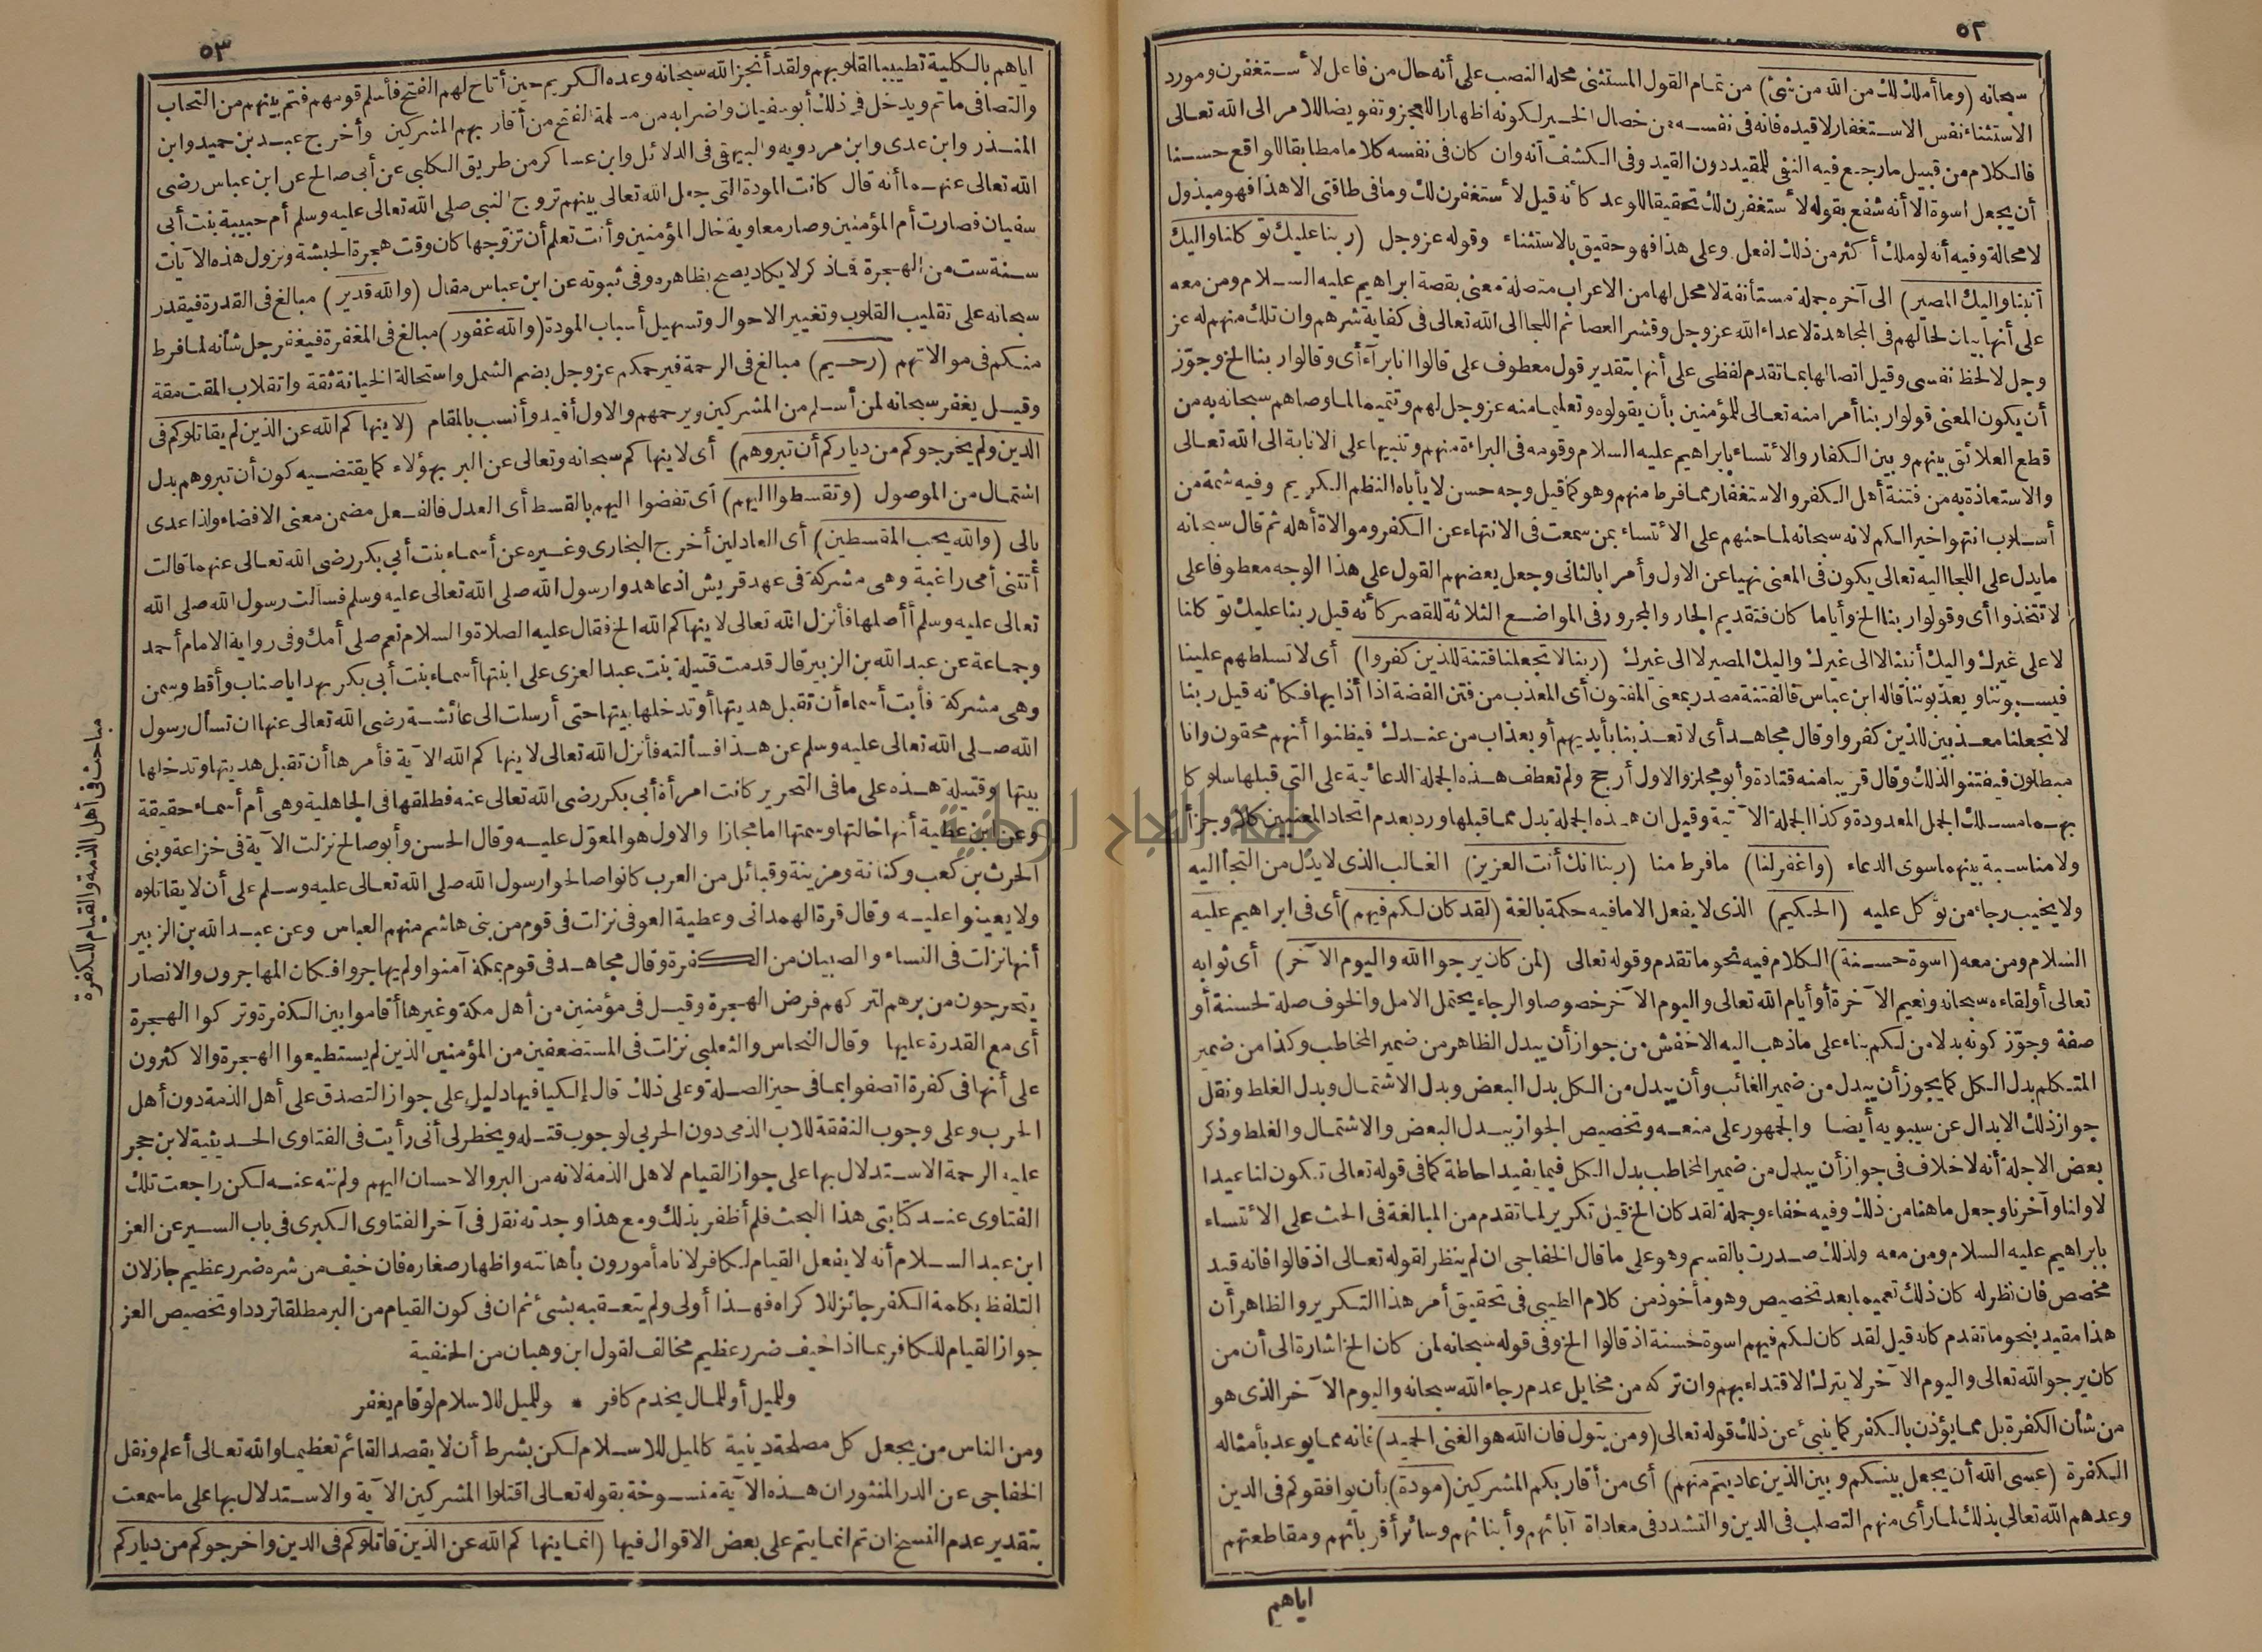 ٥٢
سبحانه (وما أملك لك من الله من شئ) من تمام القول المستثنى محله النصب على أنه حال من فاعل لأستغفرن ومورد
الاستثناء نفس الاستغفار لا قيده فانه فى نفسه من خصال الخير لكونه اظهارا للعجز وتفويضا للامر الى الله تعالى
فالكلام من قبيل ما رجع فيه النفى للمقيد دون القيد وفى الكشف أنه وان كان فى نفسه كلاما مطابقا للواقع حسنا
أن يجعل اسوة الا أنه شفع بقوله لأستغفرن لك تحقيقا للوعد كأنه قيل لأستغفرن لك وما فى طاقتى الا هذا فهو مبذول
لا محالة وفيه أنه لو ملك أكثر من ذلك لفعل وعلى هذا فهو حقيق بالاستثناء وقوله عز وجل (ربنا عليك توكلنا واليك
أنبنا واليك المصير) الى آخره جملة مستأنفة لا محل لها من الاعراب متصلة معنى بقصة ابراهيم عليه السلام ومن معه
على أنها بيان لحالهم فى المجاهدة لاعداء الله عز وجل وقشر العصا ثم اللجا الى الله تعالى فى كفاية شرهم وان تلك منهم له عز
وجل لا لحظ نفسى وقيل اتصالها بما تقدم لفظى على أنها بتقدير قول معطوف على قالوا انا برآء أى وقالوا ربنا الخ وجوّز
أن يكون المعنى قولوا ربنا أمرا منه تعالى للمؤمنين بأن يقولوه وتعليما منه عز وجل لهم وتتميما لما وصاهم سبحانه به من
قطع العلائق بينهم وبين الكفار والائتساء بابراهيم عليه السلام وقومه فى البراءة منهم وتنبيها على الانابة الى الله تعالى
والاستعاذة به من فتنة أهل الكفر والاستغفار مما فرط منهم وهو كما قيل وجه حسن لا يأباه النظم الكريم وفيه شمة من
أسلوب انتهوا خيرا لكم لانه سبحانه لما حثهم على الائتساء بمن سمعت فى الانتهاء عن الكفر وموالاة أهله ثم قال سبحانه
ما يدل على اللجا اليه تعالى يكون فى المعنى نهيا عن الاول وأمرا بالثانى وجعل بعضهم القول على هذا الوجه معطوفا على
لا تتخذوا أى وقولوا ربنا الخ وأياما كان فتقديم الجار والمجرور فى المواضع الثلاثة للقصر كأنه قيل ربنا عليك توكلنا
لا على غيرك واليك أنبنا لا الى غيرك واليك المصير لا الى غيرك (ربنا لا تجعلنا فتنة للذين كفروا) أى لا تسلطهم علينا
فيسبوننا ويعذبوننا قاله ابن عباس فالفتنة مصدر بمعنى المفتون أى المعذب من فتن الفضة اذا أذابها فكأنه قيل ربنا
لا تجعلنا معذبين للذين كفروا وقال مجاهد أى لا تعذبنا بأيديهم أو بعذاب من عندك فيظنوا أنهم محقون وانا
مبطلون فيفتنوا لذلك وقال قريبا منه قتادة وأبو مجلز والاول أرجح ولم تعطف هذه الجملة الدعائية على التى قبلها سلوكا
بهما مسلك الجمل المعدودة وكذا الجملة الآتية وقيل ان هذه الجملة بدل مما قبلها ورد بعدم اتحاد المعنيين كلا وجزأ
ولا مناسبة بينهما سوى الدعاء (واغفر لنا) ما فرط منا (ربنا انك أنت العزيز) الغالب الذى لا يذل من التجأ اليه
ولا يخيب رجاء من توكل عليه (الحكيم) الذى لا يفعل الا ما فيه حكمة بالغة (لقد كان لكم فيهم) أى فى ابراهيم عليه
السلام ومن معه (اسوة حسنة) الكلام فيه نحو ما تقدم وقوله تعالى (لمن كان يرجوا الله واليوم الآخر) أى ثوابه
تعالى أو لقاءه سبحانه ونعيم الآخرة أو أيام الله تعالى واليوم الآخر خصوصا والرجاء يحتمل الامل والخوف صلة لحسنة أو
صفة وجوّز كونه بدلا من لكم بناء على ما ذهب اليه الاخفش من جواز أن يبدل الظاهر من ضمير المخاطب وكذا من ضمير
المتكلم بدل الكل كما يجوز أن يبدل من ضمير الغائب وأن يبدل من الكل بدل البعض وبدل الاشتمال وبدل الغلط ونقل
جواز ذلك الابدال عن سيبويه أيضا والجمهور على منعه وتخصيص الجواز ببدل البعض والاشتمال والغلط وذكر
بعض الاجلة أنه لا خلاف فى جواز أن يبدل من ضمير المخاطب بدل الكل فيما يفيد احاطة كما فى قوله تعالى تكون لنا عيدا
لاولنا وآخرنا وجعل ما هنا من ذلك وفيه خفاء وجملة لقد كان الخ قيل تكرير لما تقدم من المبالغة فى الحث على الائتساء
بابراهيم عليه السلام ومن معه ولذلك صدرت بالقسم وهو على ما قال الخفاجى ان لم ينظر لقوله تعالى اذ قالوا فانه قيد
مخصص فان نظر له كان ذلك تعميما بعد تخصيص وهو مأخوذ من كلام الطيبى فى تحقيق أمر هذا التكرير والظاهر أن
هذا مقيد بنحو ما تقدم كانه قيل لقد كان لكم فيهم اسوة حسنة اذ قالوا الخ وفى قوله سبحانه لمن كان الخ اشارة الى أن من
كان يرجو الله تعالى واليوم الآخر لا يترك الاقتداء بهم وان تركه من مخايل عدم رجاء الله سبحانه واليوم الآخر الذى هو
من شأن الكفرة بل مما يؤذن بالكفر كما ينبئ عن ذلك قوله تعالى (ومن يتول فان الله هو الغنى الحميد) فانه مما يوعد بأمثاله
الكفرة (عسى الله أن يجعل بينكم وبين الذين عاديتم منهم) أى من أقاربكم المشركين (مودة) بأن يوافقوكم فى الدين
وعدهم الله تعالى بذلك لما رأى منهم التصلب فى الدين والتشدد فى معاداة آبائهم وأبنائهم وسائر أقربائهم ومقاطعتهم
اياهم
٥٣
اياهم بالكلية تطييبا لقلوبهم ولقد أنجز الله سبحانه وعده الكريم حين أتاح لهم الفتح فأسلم قومهم فتم بينهم من التحاب
والتصافى ما تم ويدخل فى ذلك أبو سفيان واضرابه من مسلمة الفتح من أقاربهم المشركين وأخرج عبد بن حميد وابن
المنذر وابن عدى وابن مردويه والبيهقى فى الدلائل وابن عساكر من طريق الكلبى عن أبى صالح عن ابن عباس رضى
الله تعالى عنهما أنه قال كانت المودة التى جعل الله تعالى بينهم تزوج النبى صلى الله تعالى عليه وسلم أم حبيبة بنت أبى
سفيان فصارت أم المؤمنين وصار معاوية خال المؤمنين وأنت تعلم أن تزوجها كان وقت هجرة الحبشة ونزول هذه الآيات
سنة ست من الهجرة فما ذكر لا يكاد يصح بظاهره وفى ثبوته عن ابن عباس مقال (والله قدير) مبالغ فى القدرة فيقدر
سبحانه على تقليب القلوب وتغيير الاحوال وتسهيل أسباب المودة (والله غفور) مبالغ فى المغفرة فيغفر جل شأنه لما فرط
منكم فى موالاتهم (رحيم) مبالغ فى الرحمة فيرحمكم عز وجل بضم الشمل واستحالة الخيانة ثقة وانقلاب المقت مقة
وقيل يغفر سبحانه لمن أسلم من المشركين ويرحمهم والاول أفيد وأنسب بالمقام (لا ينهاكم الله عن الذين لم يقاتلوكم فى
الدين ولم يخرجوكم من دياركم أن تبروهم) أى لا ينهاكم سبحانه وتعالى عن البر بهؤلاء كما يقتضيه كون أن تبروهم بدل
اشتمال من الموصول (وتقسطوا اليهم) أى تفضوا اليهم بالقسط أى العدل فالفعل مضمن معنى الافضاء ولذا عدى
بالى (والله يحب المقسطين) أى العادلين أخرج البخارى وغيره عن أسماء بنت أبى بكر رضى الله تعالى عنهما قالت
أتتنى أمى راغبة وهى مشركة فى عهد قريش اذ عاهدوا رسول الله صلى الله تعالى عليه وسلم فسألت رسول الله صلى الله
تعالى عليه وسلم أأصلها فأنزل الله تعالى لا ينهاكم الله الخ فقال عليه الصلاة والسلام نعم صلى أمك وفى رواية الامام أحمد
وجماعة عن عبد الله بن الزبير قال قدمت قتيلة بنت عبد العزى على ابنتها أسماء بنت أبى بكر بهدايا صناب وأقط وسمن
وهى مشركة فأبت أسماء أن تقبل هديتها أو تدخلها بيتها حتى أرسلت الى عائشة رضى الله تعالى عنها ان تسأل رسول
الله صلى الله تعالى عليه وسلم عن هذا فسألته فأنزل الله تعالى لا ينهاكم الله الآية فأمرها أن تقبل هديتها وتدخلها
بيتها وقتيلة هذه على ما فى التحرير كانت امرأة أبى بكر رضى الله تعالى عنه فطلقها فى الجاهلية وهى أم أسماء حقيقة
وعن ابن عطية أنها خالتها وسمتها اما مجازا والاول هو المعوّل عليه وقال الحسن وأبو صالح نزلت الآية فى خزاعة وبنى
الحرث بن كعب وكنانة ومزينة وقبائل من العرب كانوا صالحوا رسول الله صلى الله تعالى عليه وسلم على أن لا يقاتلوه
ولا يعينوا عليه وقال قرة الهمدانى وعطية العوفى نزلت فى قوم من بنى هاشم منهم العباس وعن عبد الله بن الزبير
أنها نزلت فى النساء والصبيان من الكفرة وقال مجاهد فى قوم بمكة آمنوا ولم يهاجروا فكان المهاجرون والانصار
يتحرجون من برهم لتركهم فرض الهجرة وقيل فى مؤمنين من أهل مكة وغيرها أقاموا بين الكفرة وتركوا الهجرة
أى مع القدرة عليها وقال النحاس والثعلبى نزلت فى المستضعفين من المؤمنين الذين لم يستطيعوا الهجرة والاكثرون
على أنها فى كفرة اتصفوا بما فى حيز الصلة وعلى ذلك قال إلكيا فيها دليل على جواز التصدق على أهل الذمة دون أهل
الحرب وعلى وجوب النفقة للاب الذمى دون الحربى لوجوب قتله ويخطر لى أنى رأيت فى الفتاوى الحديثية لابن حجر
عليه الرحمة الاستدلال بها على جواز القيام لاهل الذمة لانه من البر والاحسان اليهم ولم ننه عنه لكن راجعت تلك
الفتاوى عند كتابتى هذا البحث فلم أظفر بذلك ومع هذا وجدته نقل فى آخر الفتاوى الكبرى فى باب السير عن العز
ابن عبد السلام أنه لا يفعل القيام لكافر لانا مأمورون باهانته واظهار صغاره فان خيف من شره ضرر عظيم جاز لان
التلفظ بكلمة الكفر جائز للاكراه فهذا أولى ولم يتعقبه بشئ ثم ان فى كون القيام من البر مطلقا ترددا وتخصيص العز
جواز القيام للكافر بما اذا خيف ضرر عظيم مخالف لقول ابن وهبان من الحنفية
وللميل أو للمال يخدم كافر * وللميل للاسلام لو قام يغفر
ومن الناس من يجعل كل مصلحة دينية كالميل للاسلام لكن بشرط أن لا يقصد القائم تعظيما والله تعالى أعلم ونقل
الخفاجى عن الدر المنثور ان هذه الآية منسوخة بقوله تعالى اقتلوا المشركين الآية والاستدلال بها على ما سمعت
بتقدير عدم النسخ ان تم انما يتم على بعض الاقوال فيها (انما ينهاكم الله عن الذين قاتلوكم فى الدين واخرجوكم من دياركم
مباحث فى أهل الذمة والقيام للكفرة
جامعة النجاح الوطنية